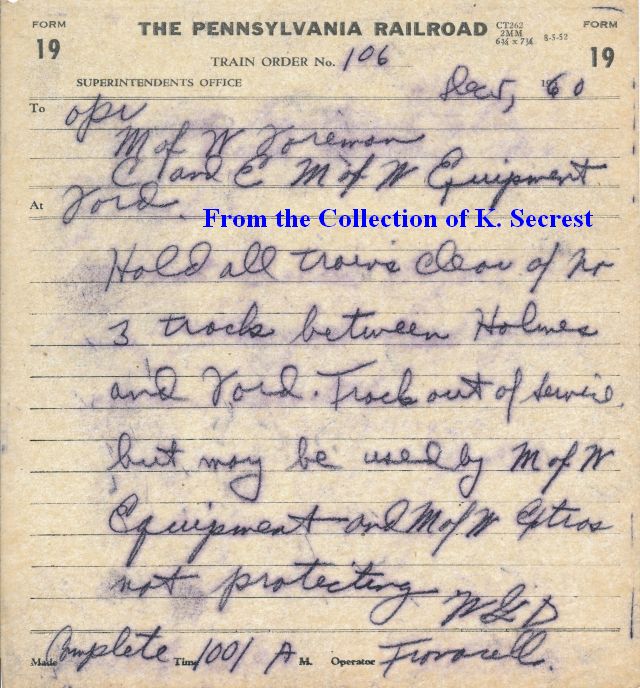 FORM 19
THE PENNSYLVANIA RAILROAD
CT262
2MM
6¾ x 7¼
8-5-52
FORM 19
TRAIN ORDER No. 106
SUPERINTENDENTS OFFICE
Dec 5, 1960
To opr
M of W Foreman
C and E M of W Equipment
At Ford.
From the Collection of K. Secrest
Hold all trains clear of No
3 track between Holmes
and Ford. Track out of service
but may be used by M of W
Equipment and M of W Extras
not protecting
Made Complete Time 1001 A M. Operator